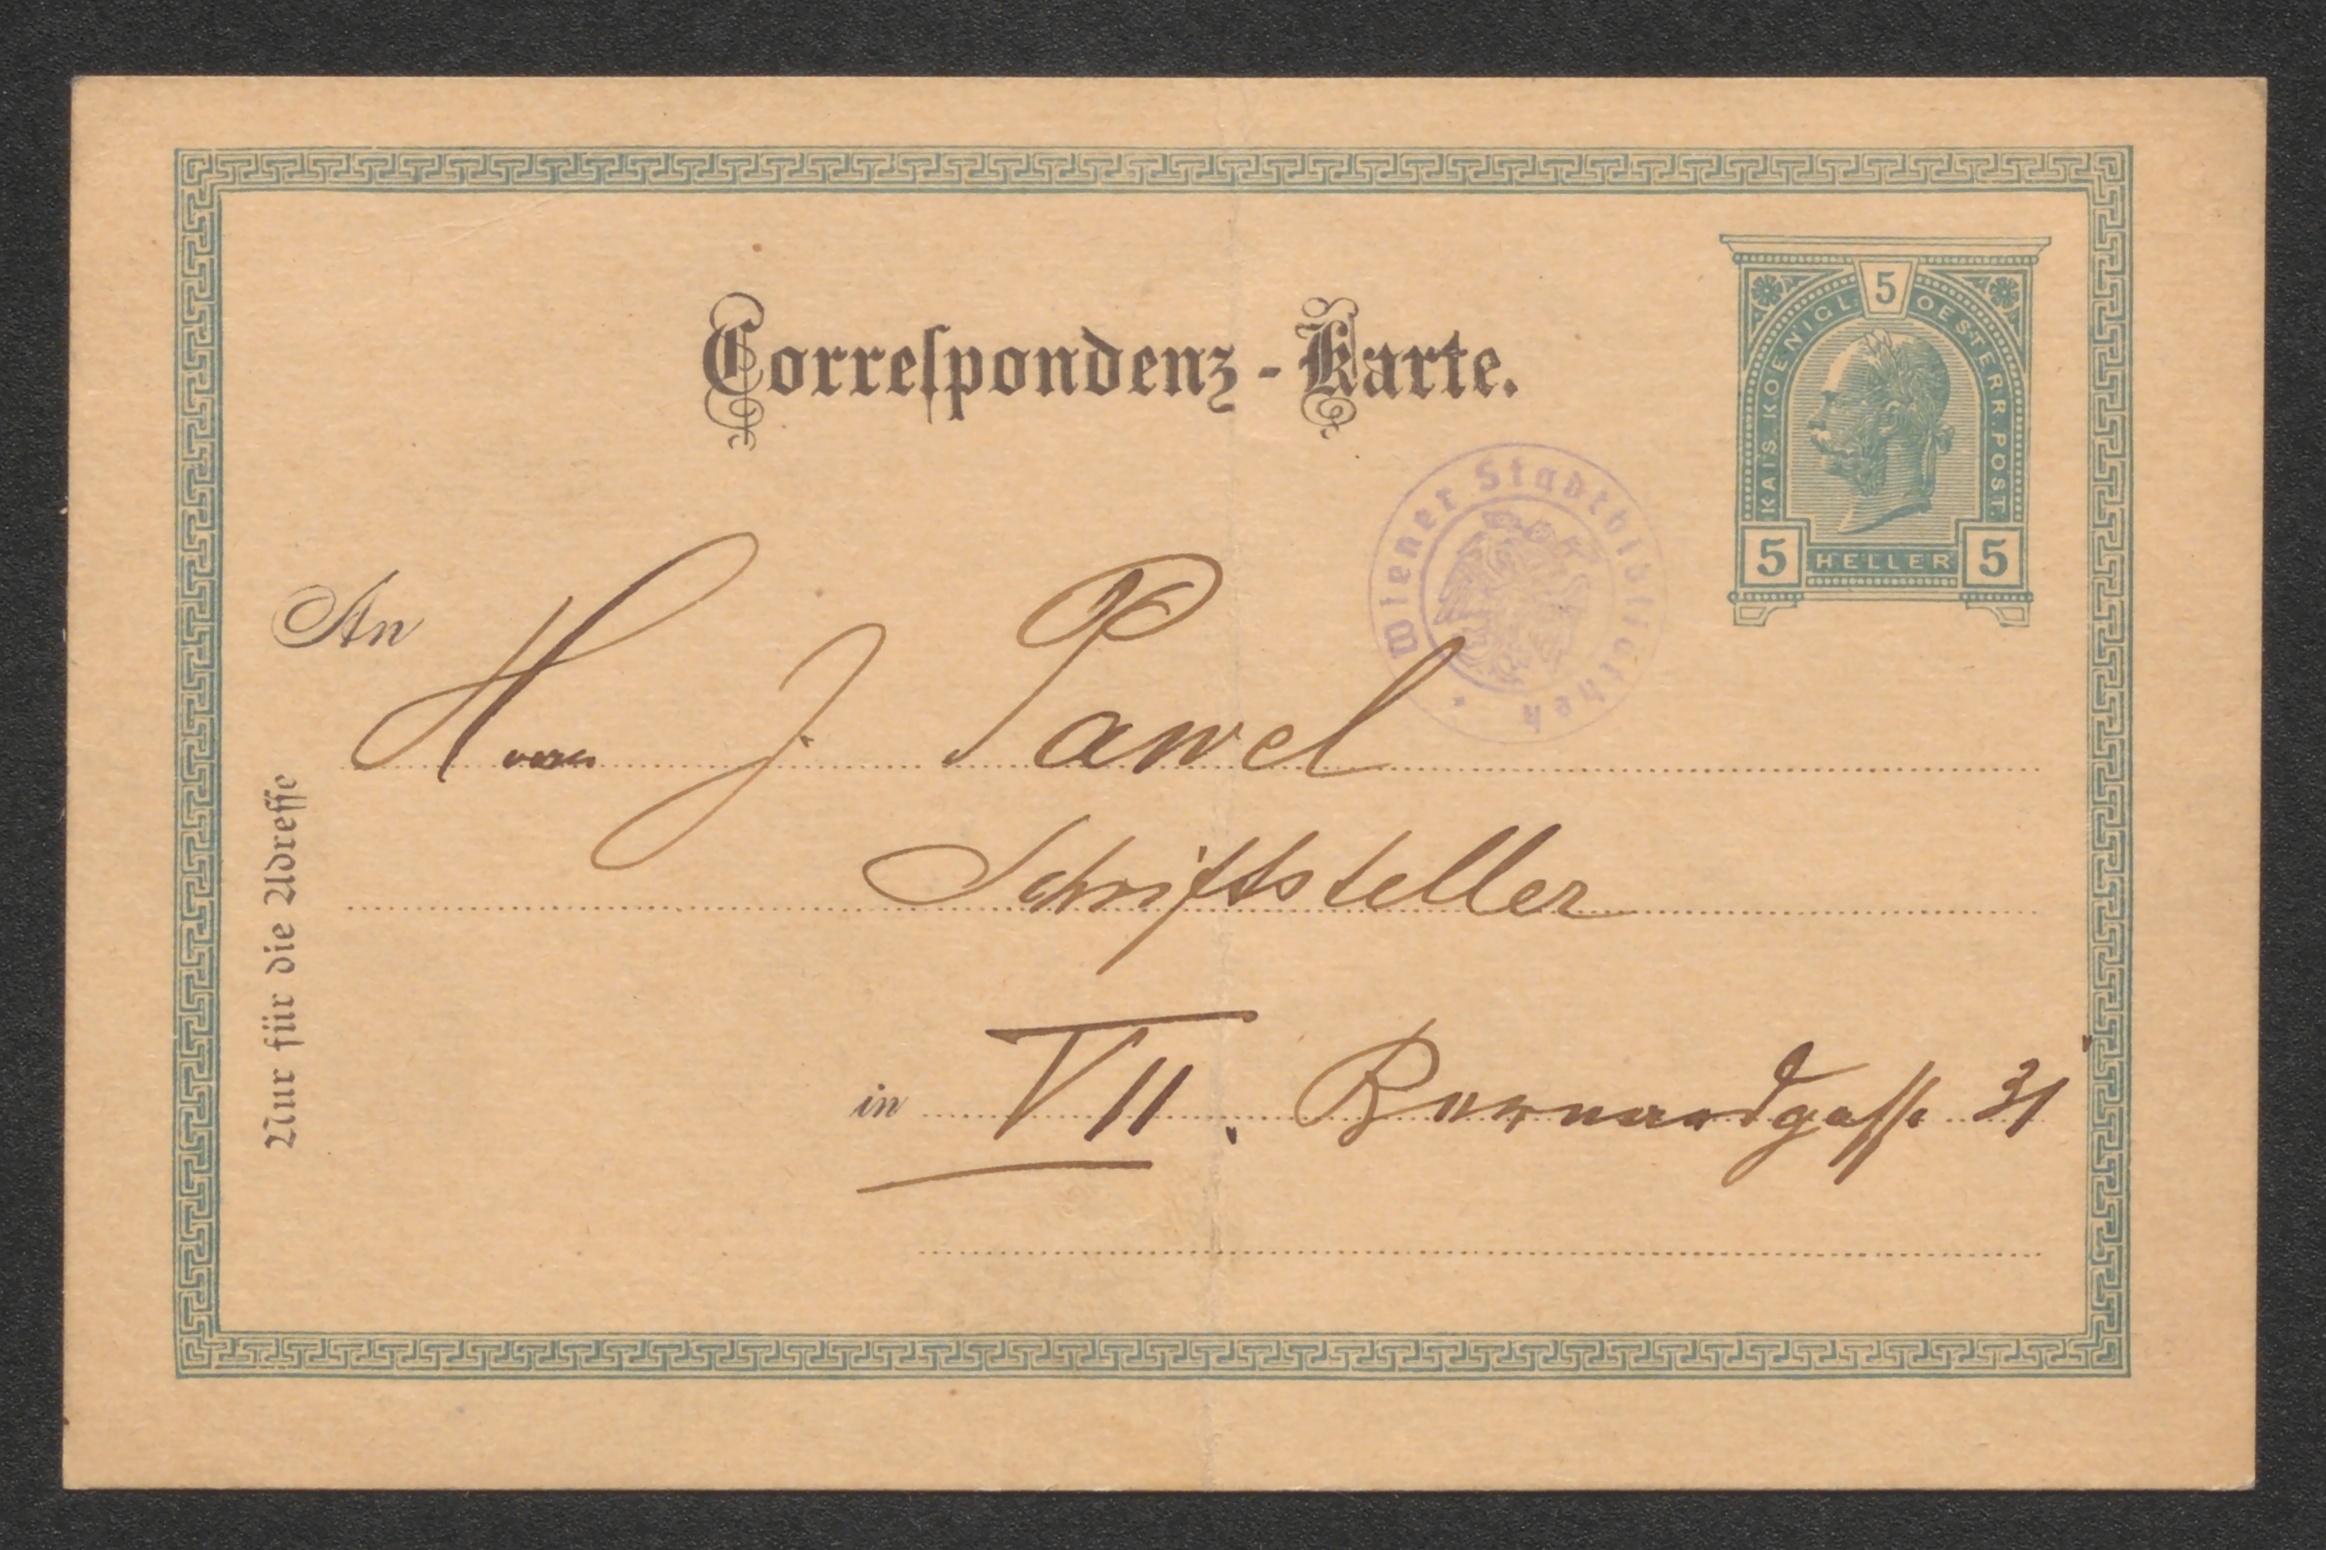 Correspondenz-Karte.
5
KAIS. KOENIGL. OESTERR. POST.
5 HELLER 5
Wiener Stadtbibliothek
An Herrn J. Pawel
Schriftsteller
in VII. Bernardgasse 31
Nur für die Adresse